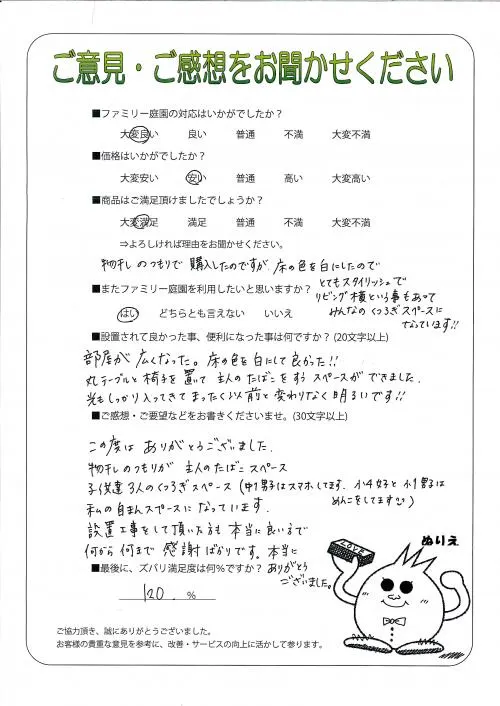 ご意見・ご感想をお聞かせください
■ファミリー庭園の対応はいかがでしたか？
大変良い 良い 普通 不満 大変不満
■価格はいかがでしたか？
大変安い 安い 普通 高い 大変高い
■商品はご満足頂けましたでしょうか？
大変満足 満足 普通 不満 大変不満
⇒よろしければ理由をお聞かせください。
物干しのつもりで購入したのですが、床の色を白にしたので
とてもスタイリッシュで
リビング横という事もあって
みんなのくつろぎスペースに
なっています!!
■またファミリー庭園を利用したいと思いますか？
はい どちらとも言えない いいえ
■設置されて良かった事、便利になった事は何ですか？(20文字以上)
部屋が広くなった。床の色を白にして良かった!!
丸テーブルと椅子を置いて主人のたばこをすうスペースができました。
光もしっかり入ってきてまったく以前と変わりなく明るいです!!
■ご感想・ご要望などをお書きくださいませ。(30文字以上)
この度はありがとうございました。
物干しのつもりが主人のたばこスペース
子供達3人のくつろぎスペース(中1男子はスマホしてます。小4女子と小1男子は
めんこをしてます)
私の自まんスペースになっています。
設置工事をして頂いた方も本当に良い方で
何から何まで感謝ばかりです。本当に
ありがとう
ございました。
■最後に、ズバリ満足度は何%ですか？
120 %
LOVE
ぬりえ
ご協力頂き、誠にありがとうございました。
お客様の貴重な意見を参考に、改善・サービスの向上に活かして参ります。